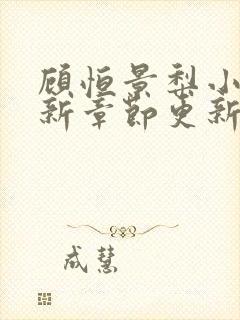 顾恒景梨小
新章节更新
成慧